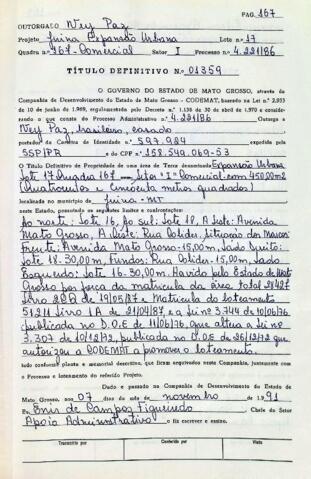 PAG. 167
OUTORGADO Ney Paz
Projeto Juina Expansão Urbana Lote n.o 17
Quadra n.o 167-Comercial Setor I Processo n.o 4.221/86
TÍTULO DEFINITIVO N.o 01359
O GOVERNO DO ESTADO DE MATO GROSSO, através da
Companhia de Desenvolvimento do Estado de Mato Grosso - CODEMAT, baseado na Lei n.o
10 de junho de 1969, regulamentada pelo Decreto n.o 1.138 de 30 de abril de 1970 e considerando
o que consta do Processo Administrativo n.o 4.221/86 Outorga a
Ney Paz, brasileiro, casado
portador da Carteira de Identidade n.o 597.924 expedida pela
SSP/PR e do CPF n.o 158.549.069-53
O Título Definitivo de Propriedade de uma área de Terra denominada Expansão Urbana
Lote 17 Quadra 167 - Setor "I" Comercial com 450,00m2
(Quatrocentos e Cinquenta metros quadrados)
localizada no município de Juina - MT
neste Estado, possuindo as seguintes limites e confrontações:
Ao norte: Lote 16, Ao Sul: Lote 18, A Leste: Avenida
Mato Grosso, A Oeste: Rua Colider. Situação dos Marcos:
Frente: Avenida Mato Grosso - 15,00m, Lado Direito:
Lote 18 - 30,00m, Fundos: Rua Colider - 15,00m, Lado
Esquerdo: Lote 16 - 30,00m. Havido pelo Estado de Mato
Grosso por força da matricula da área total 28427
Livro 2CQ de 19/05/87 e Matricula do loteamento
51.211 Livro 1A de 21/04/87, e a Lei nº 3.744 de 10/06/76
publicada no D.O.E de 11/06/76, que altera a Lei nº
3.307 de 10/12/72, publicada no D.O.E de 26/12/72 que
autorizou a CODEMAT a promover o loteamento.
tudo conforme planta e memorial descritivo, que ficam arquivados nesta Companhia, juntamente com
o Processo e loteamento do referido Projeto.
Dado e passado na Companhia de Desenvolvimento do Estado de
Mato Grosso, aos 07 dias do mês de novembro de 1.991
Eu, Enir de Campos Figueiredo Chefe do Setor
Apoio Administrativo o fiz escrever e assino.
Transcrito por Conferido por Visto